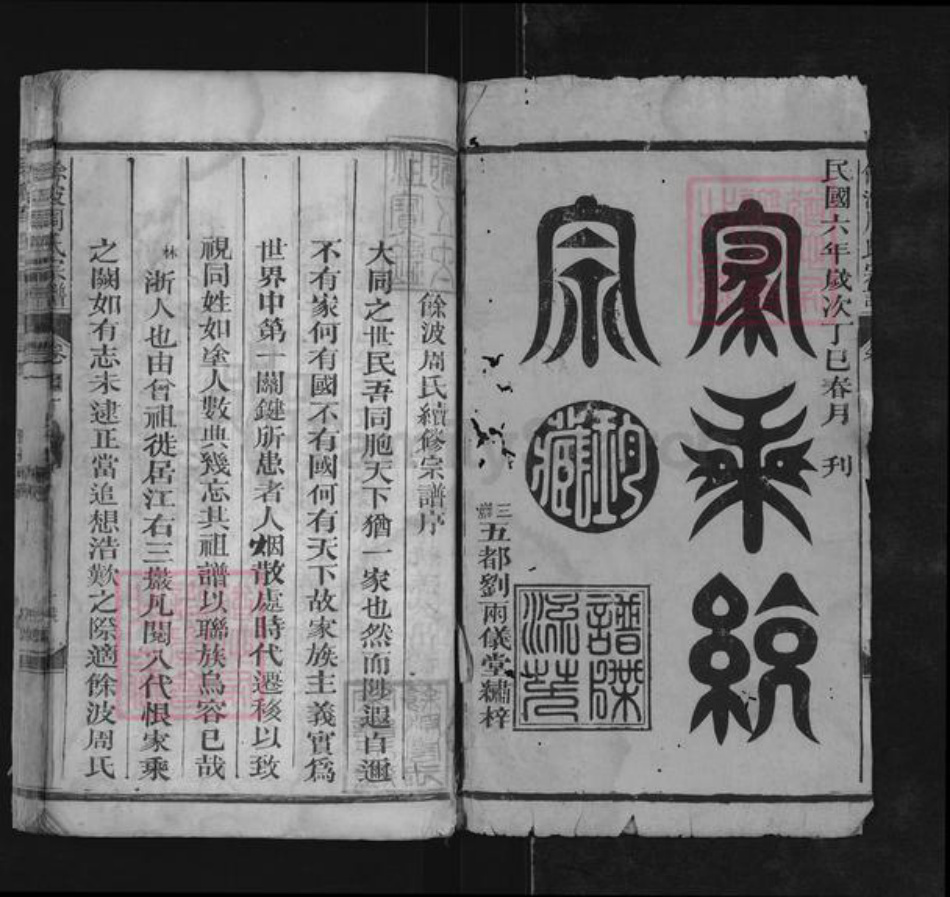 民國六年歲次丁巳春月 刊
家乘統宗
珍藏
譜牒流芳
三㵎五都劉兩儀堂繡梓
餘波周氏續修宗譜序
大同之世民吾同胞天下猶一家也然而陟遐自邇
不有家何有國不有國何有天下故家族主義實爲
世界中第一關鍵所患者人烟散處時代遷移以致
視同姓如塗人數典幾忘其祖譜以聯族烏容已哉
林浙人也由曾祖徙居江右三㵎凡閱八代恨家乘
之闕如有志未逮正當追想浩歎之際適餘波周氏
餘波周氏宗譜